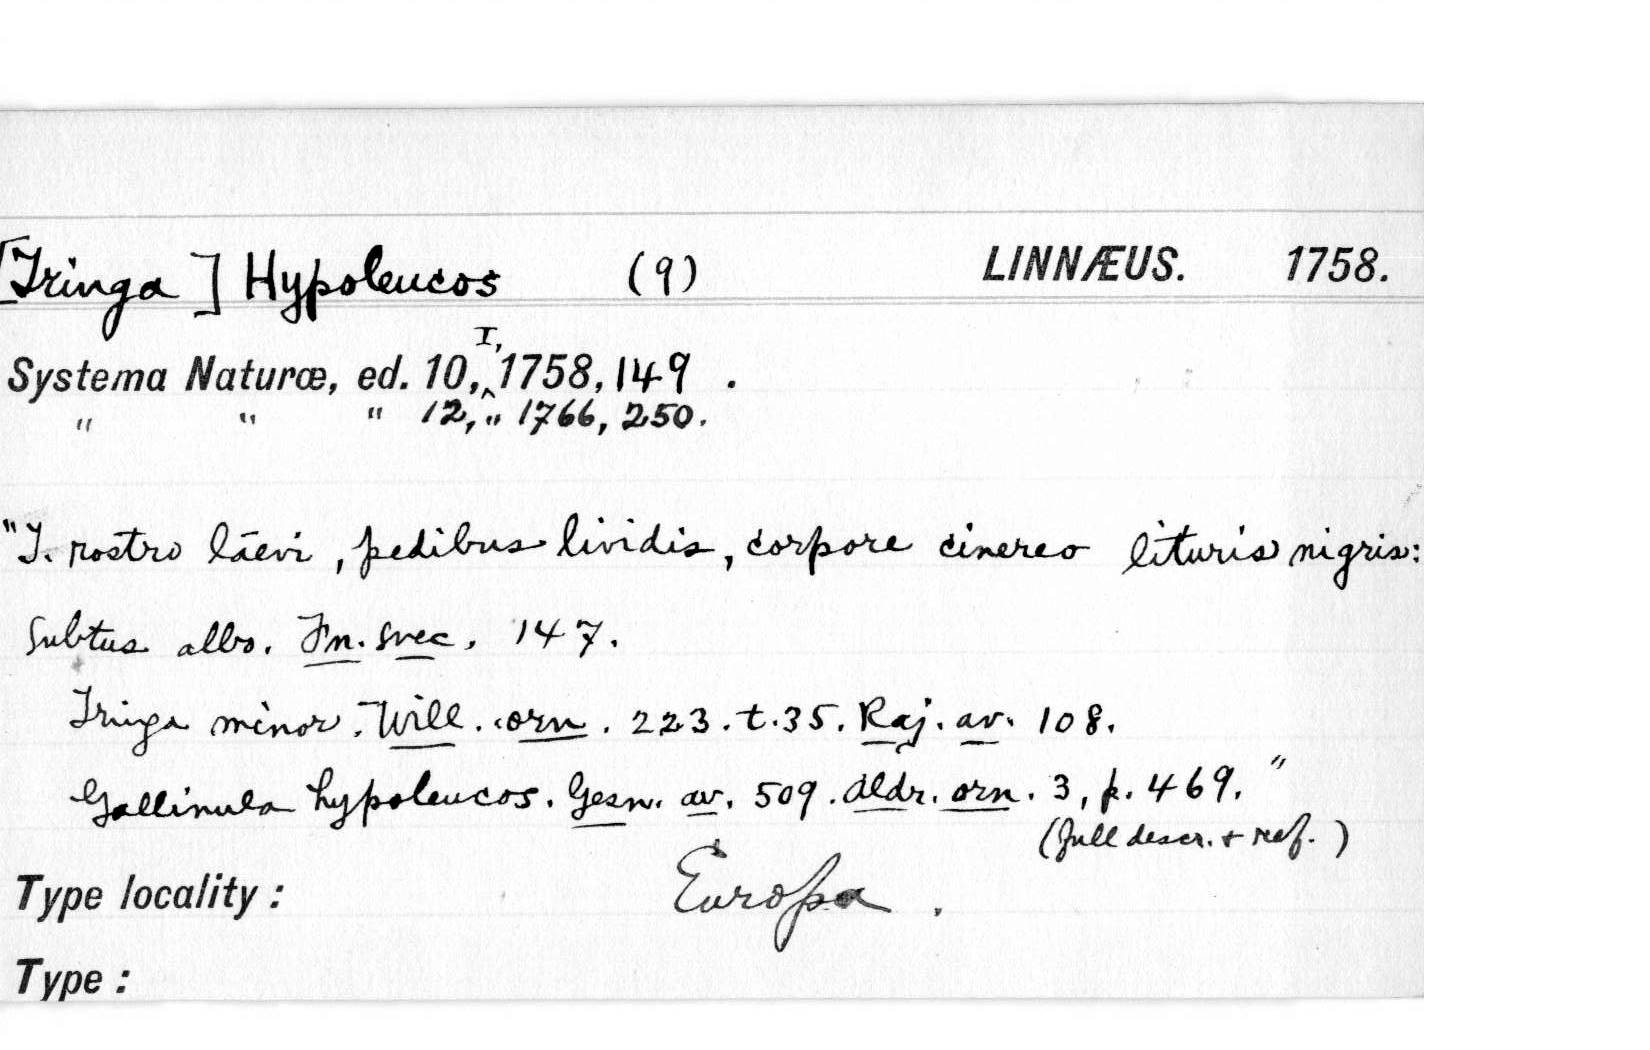 [Tringa] Hypoleucos (9) LINNÆUS. 1758.
Systema Naturæ, ed. 10, I, 1758, 149.
" " " 12, " 1766, 250.
"T. rostro lāevi, pedibus lividis, corpore cinereo lituris nigris:
subtus albo. Fn. svec. 147.
Tringa minor. Will. orn. 223. t. 35. Raj. av. 108.
Gallinula hypoleucos. Gesn. av. 509. Aldr. orn. 3, p. 469."
(full descr. + ref.)
Type locality: Europa.
Type: